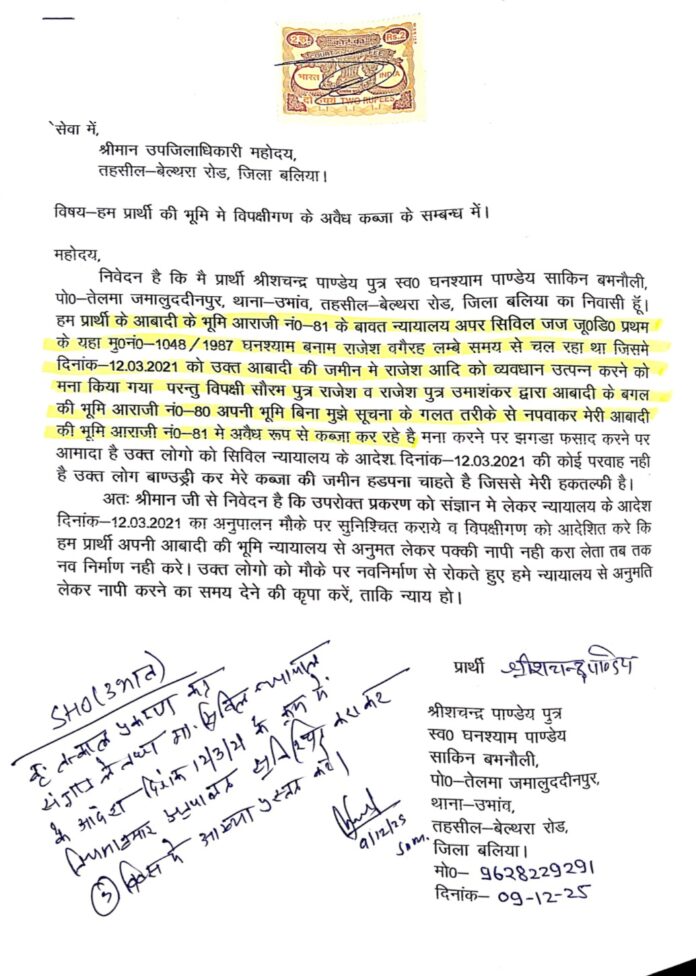 2रु०
Rs.2
भारत
INDIA
TWO RUPEES
सेवा में,
श्रीमान उपजिलाधिकारी महोदय,
तहसील–बेल्थरा रोड, जिला बलिया।
विषय–हम प्रार्थी की भूमि मे विपक्षीगण के अवैध कब्जा के सम्बन्ध में।
महोदय,
निवेदन है कि मै प्रार्थी श्रीशचन्द्र पाण्डेय पुत्र स्व0 घनश्याम पाण्डेय साकिन बमनौली,
पो0–तेलमा जमालुददीनपुर, थाना–उभांव, तहसील–बेल्थरा रोड, जिला बलिया का निवासी हूँ।
हम प्रार्थी के आबादी के भूमि आराजी नं0–81 के बावत न्यायालय अपर सिविल जज जू0डि0 प्रथम
के यहा मु0नं0–1048/1987 घनश्याम बनाम राजेश वगैरह लम्बे समय से चल रहा था जिसमे
दिनांक–12.03.2021 को उक्त आबादी की जमीन मे राजेश आदि को व्यवधान उत्पन्न करने को
मना किया गया परन्तु विपक्षी सौरम पुत्र राजेश व राजेश पुत्र उमाशंकर द्वारा आबादी के बगल
की भूमि आराजी नं0–80 अपनी भूमि बिना मुझे सूचना के गलत तरीके से नपवाकर मेरी आबादी
की भूमि आराजी नं0–81 मे अवैध रूप से कब्जा कर रहे है मना करने पर झगडा फसाद करने पर
आमादा है उक्त लोगो को सिविल न्यायालय के आदेश दिनांक–12.03.2021 की कोई परवाह नही
है उक्त लोग बाण्ड्री कर मेरे कब्जा की जमीन हडपना चाहते है जिससे मेरी हकतल्फी है।
अतः श्रीमान जी से निवेदन है कि उपरोक्त प्रकरण को संज्ञान मे लेकर न्यायालय के आदेश
दिनांक–12.03.2021 का अनुपालन मौके पर सुनिश्चित कराये व विपक्षीगण को आदेशित करे कि
हम प्रार्थी अपनी आबादी की भूमि न्यायालय से अनुमत लेकर पक्की नापी नही करा लेता तब तक
नव निर्माण नही करे। उक्त लोगो को मौके पर नवनिर्माण से रोकते हुए हमे न्यायालय से अनुमति
लेकर नापी करने का समय देने की कृपा करें, ताकि न्याय हो।
प्रार्थी श्रीशचन्द्र पाण्डेय
श्रीशचन्द्र पाण्डेय पुत्र
स्व0 घनश्याम पाण्डेय
साकिन बमनौली,
पो0–तेलमा जमालुददीनपुर,
थाना–उभांव,
तहसील–बेल्थरा रोड,
जिला बलिया।
मो0– 9628229291
दिनांक– 09-12-25
SHO (उभांव)
कृ: तत्काल प्रकरण का
संज्ञान ले तथा मा. सिविल न्यायालय
के आदेश दिनांक 12/3/21 के क्रम में
नियमानुसार अनुपालन सुनिश्चित करा कर
③ दिवस में आख्या प्रस्तुत करें।
9/12/25
SDM.